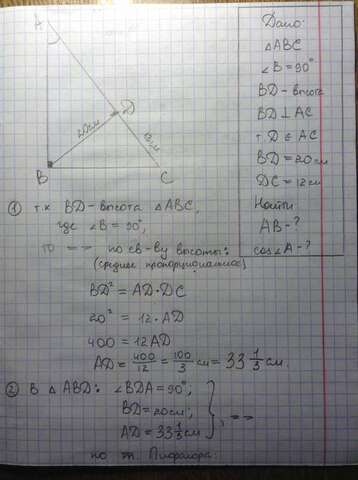 A
D
B
C
20см
12см
Дано:
△ABC
∠B = 90°
BD - высота
BD ⊥ AC
т. D ∈ AC
BD = 20 см
DC = 12 см
Найти:
AB - ?
cos∠A - ?
① т.к BD - высота △ABC,
где ∠B = 90°,
то => по св-ву высоты:
(среднее пропорциональное)
BD² = AD·DC
20² = 12·AD
400 = 12AD
AD = 400/12 = 100/3 см = 33 1/3 см.
② В △ABD: ∠BDA = 90°;
BD = 20см;
AD = 33 1/3 см
}, =>
по т. Пифагора: